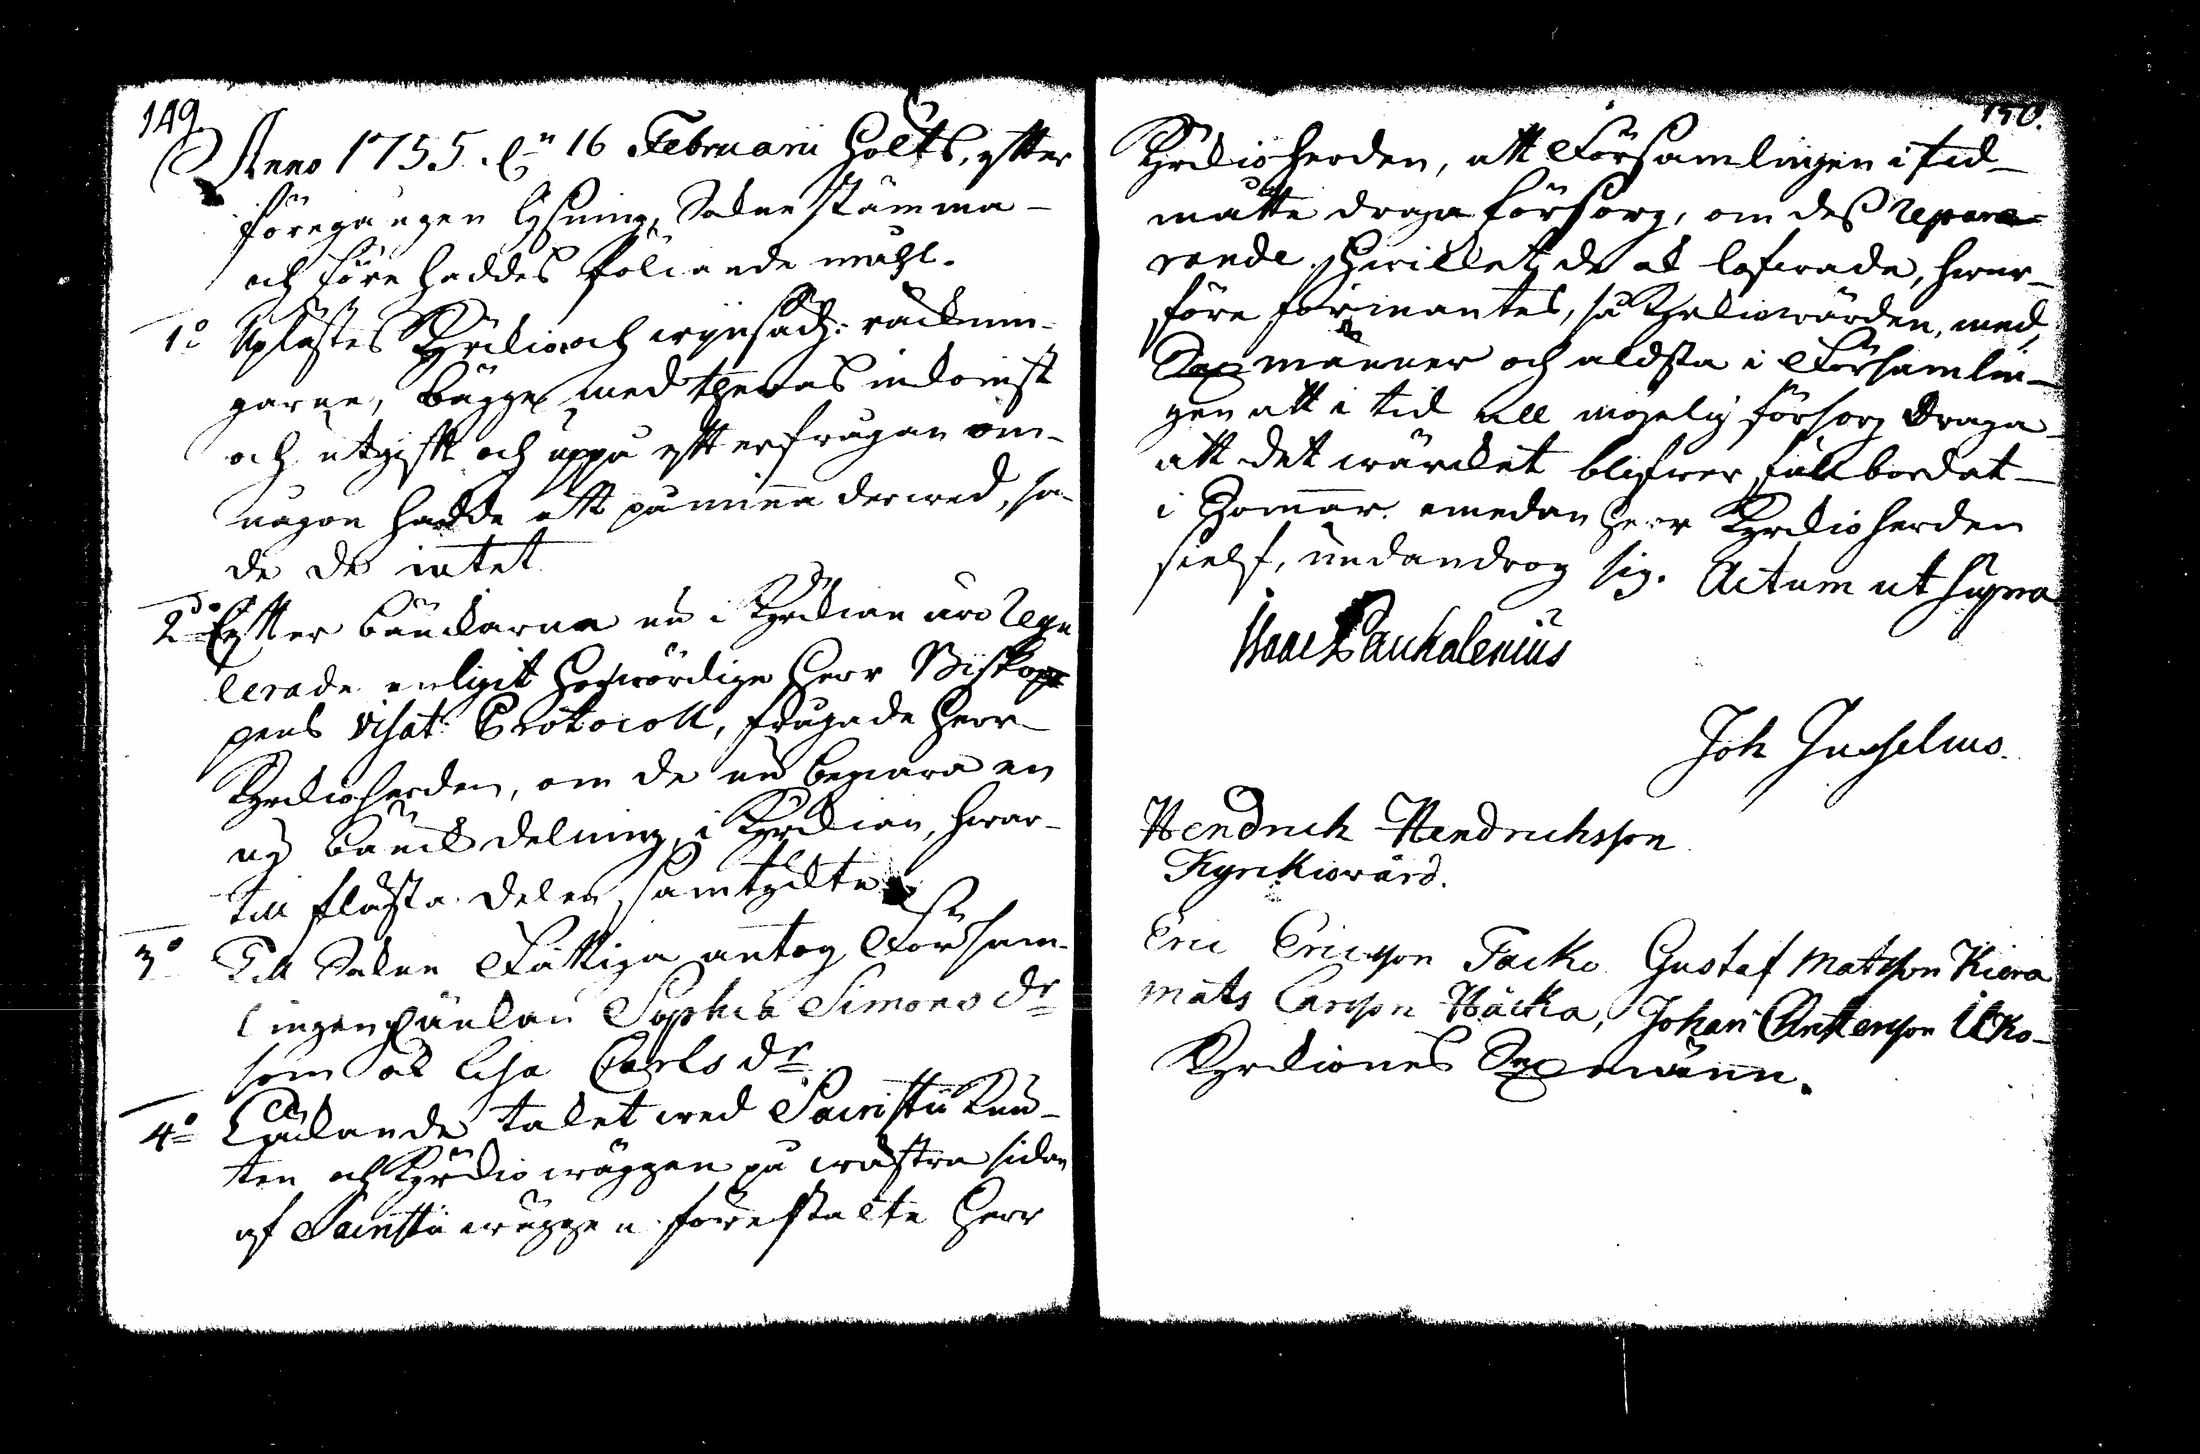 149
Anno 1755. d. 16 Februarii hölts, efter
föregången lysning, Sokne stämma
och före haddes följande mahl.
1:o Uplästes Kyrckio och wijnsädz: räcknin-
garne, bägge med theras inkomst
och utgift och uppå efterfrågan om
någon hade att påminna derwed, sa-
de de intet.
2:do Effter bänckarna nu i Kyrckian äro regu
lerade enligit Högwördige Herr Biskop
pens Visit: Protocoll, frågade Herr
Kyrckioherden, om de nu begiära en
ny bänck delning i Kyrckian, hwar-
till flästa delen samtyckte
3:o Till Sokne Fattiga antog Försam-
lingen Sophia Simons dr
som ock Lisa Carls dr
4:o Läckande taket wed Sacristii knu-
ten och Kyrckio wäggen på wästra sidan
af Sacristii wäggen förestälte Herr
150.
Kyrckioherden, att Församlingen i tid
måtte draga försorg, om dess repare-
rande. Hwilket de ock lofwade, hwar-
före förmantes, så Kyrckiowärden, med
Sex männer och äldsta i Församlin-
gen att i tid all möjelig försorg draga
att det wärcket blifwer fullbordat
i Sommar emedan Herr Kyrckioherden
sielf, undandrog sig. Actum ut supra
Isaac Pankalenius
Joh
Hendrich Hendrichsson
Kyrckiowärd.
Eric Ericsson Gustaf Matsson Kiera
Mats Larsson Johan
Kyrckiones Sexmänn.